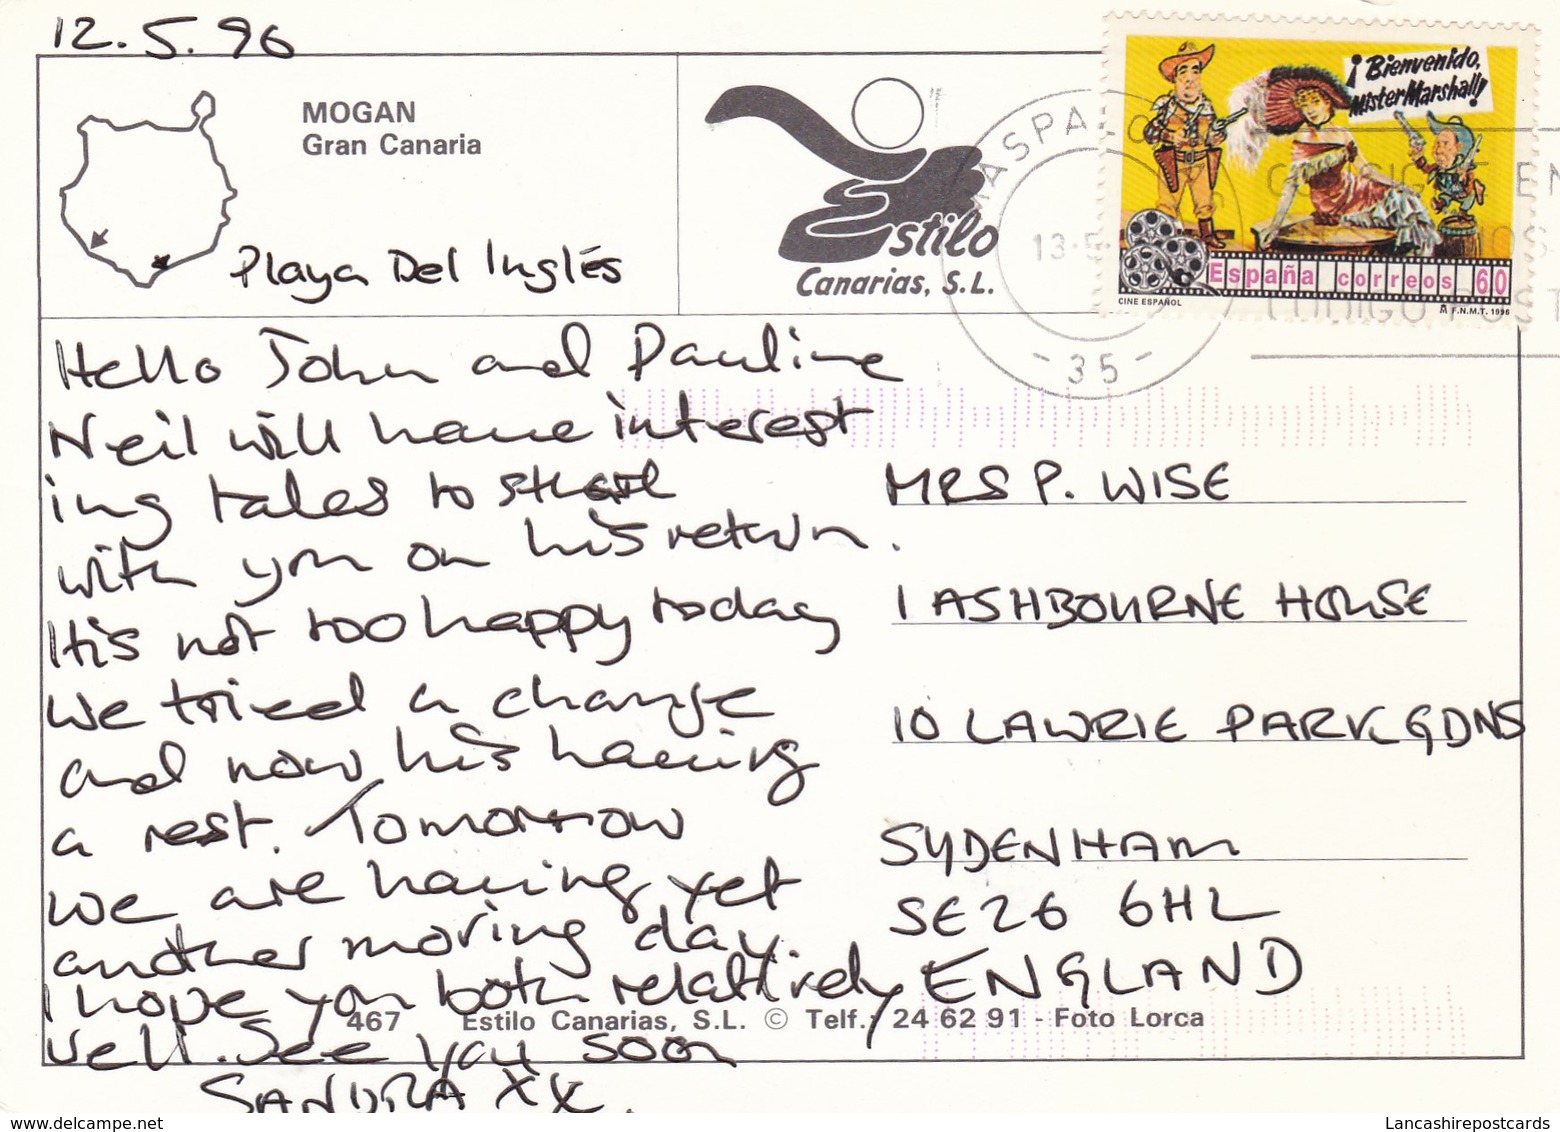 12.5.96
MOGAN
Gran Canaria
Playa Del Inglés
Estilo
Canarias, S.L.
MASPALO
13·5
- 35 -
¡Bienvenido,
Mister Marshall!
España correos 60
CINE ESPAÑOL
F.N.M.T. 1996
CODIGO POST
Hello John and Pauline
Neil will have interest
ing tales to
with you on his return.
It's not too happy today
We tried a change
and now his having
a rest. Tomorrow
we are having yet
another moving day.
I hope you both relatively
well. See you soon
SANDRA XX.
MRS P. WISE
1 ASHBOURNE HOUSE
10 LAWRIE PARK GDNS
SYDENHAM
SE26 6HL
ENGLAND
467 Estilo Canarias, S.L. © Telf.: 24 62 91 - Foto Lorca
www.delcampe.net
Lancashirepostcards